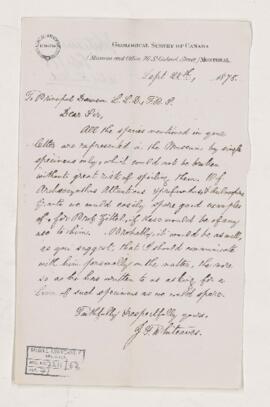 GEOLOGICAL SURVEY OF CANADA
(Museum and Office, 76 St. Gabriel Street) MONTREAL,
Sept 24th, 1878.
To Principal Dawson L.L.D., F.R.S.
Dear Sir,
All the species mentioned in your
letter are represented in the Museum by single
specimens only, which could not be broken
without great risk of spoiling them. Of
Archaeocyathus Atlanticus &
we could easily spare good examples
for Prof. Zittel, if these would be of any
use to him. Probably it would be as well,
as you suggest, that I should communicate
with him personally on the matter, the more
so as he has written to us asking for a
loan of such specimens as we could spare.
Faithfully & respectfully yours,
J. F. Whiteaves.